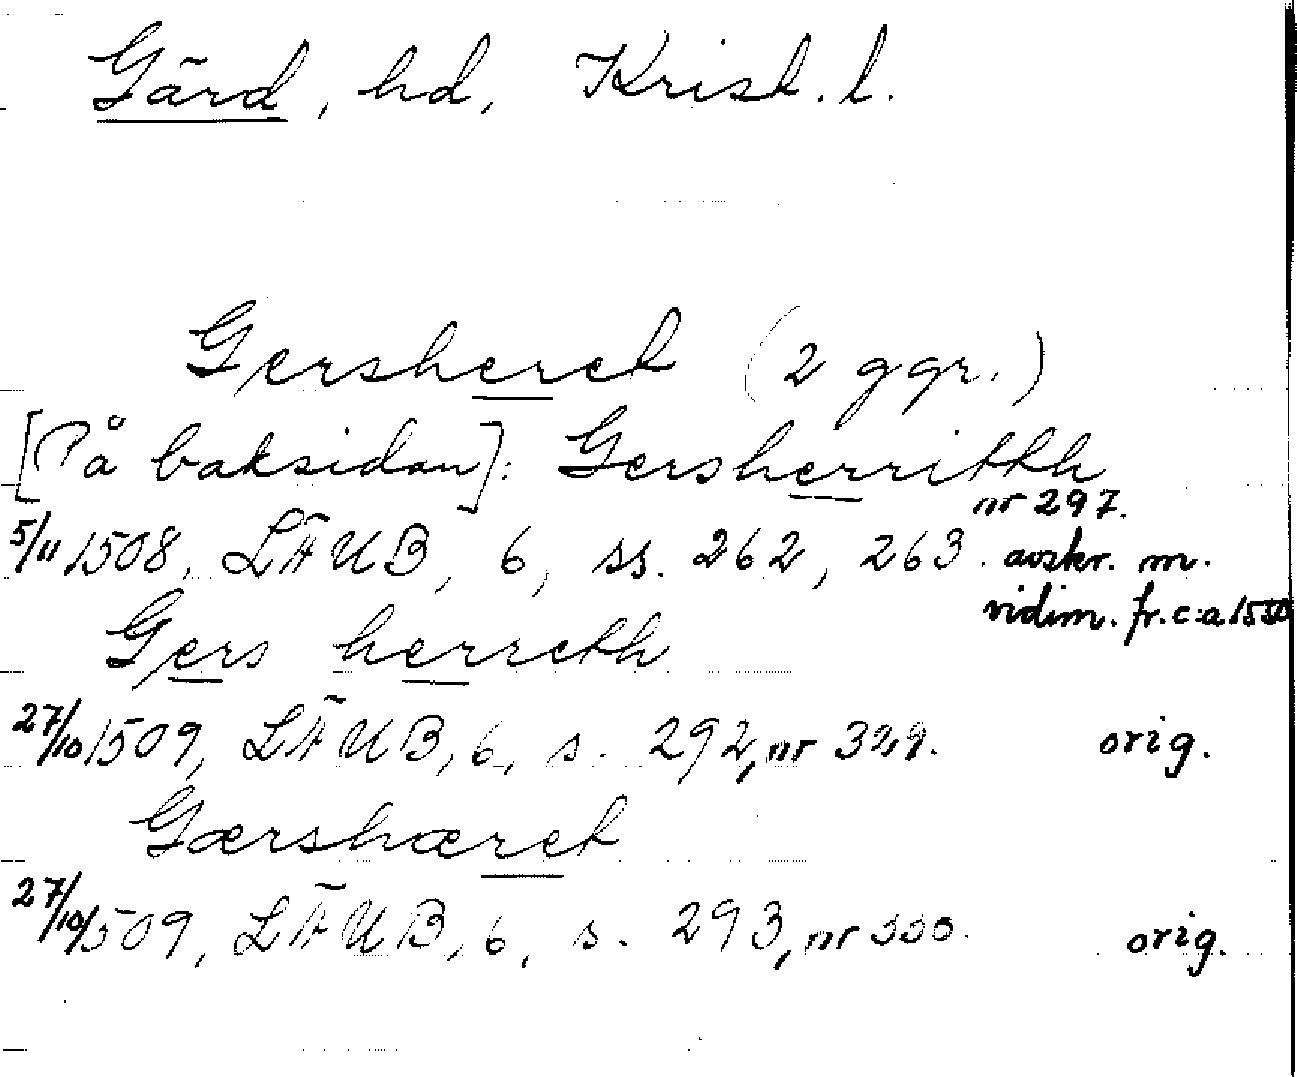 Gärd, hd, Krist. l.
Gersheret (2 ggr.)
[På baksidan]: Gersherritth
nr 297.
5/11 1508, LÄUB, 6, ss. 262, 263. avskr. m.
vidim. fr. c:a 1550
Gers herreth
27/10 1509, LÄUB, 6, s. 292, nr 329. orig.
Gærshæret
27/10 1509, LÄUB, 6, s. 293, nr 330. orig.